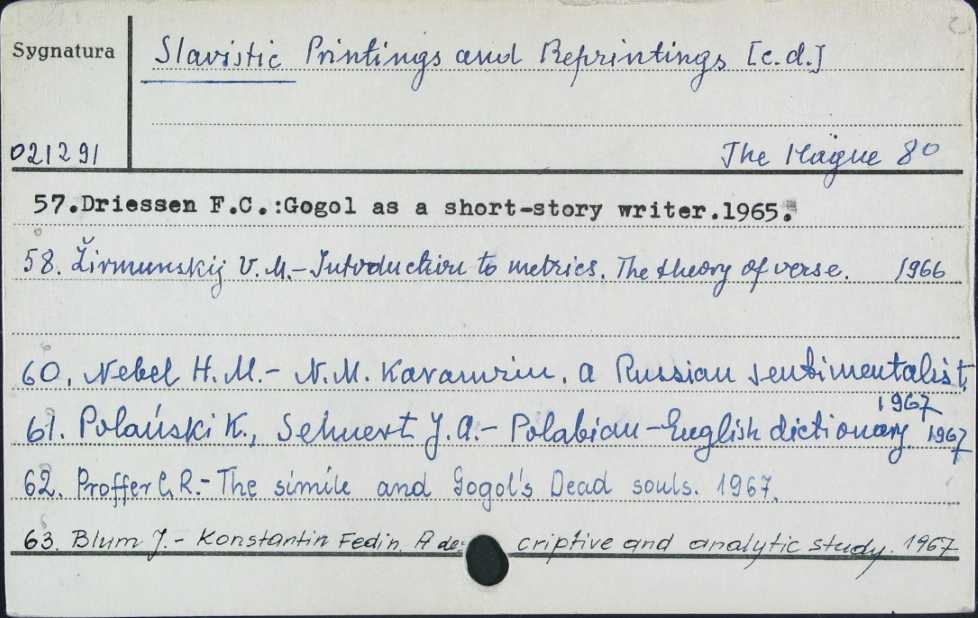 Sygnatura
Slavistic Printings and Reprintings [c.d.]
021291
The Hague 80
57.Driessen F.C.:Gogol as a short-story writer.1965.
58. Žirmunskij V. M.- Introduction to metrics. The theory of verse. 1966
60. Nebel H. M.- N. M. Karamzin. a Russian sentimentalist.
1967
61. Polański K., Sehnert J. A.- Polabian-English dictionary 1967
62. Proffer C. R.- The simile and Gogol's Dead souls. 1967.
63. Blum J.- Konstantin Fedin. A des criptive and analytic study. 1967